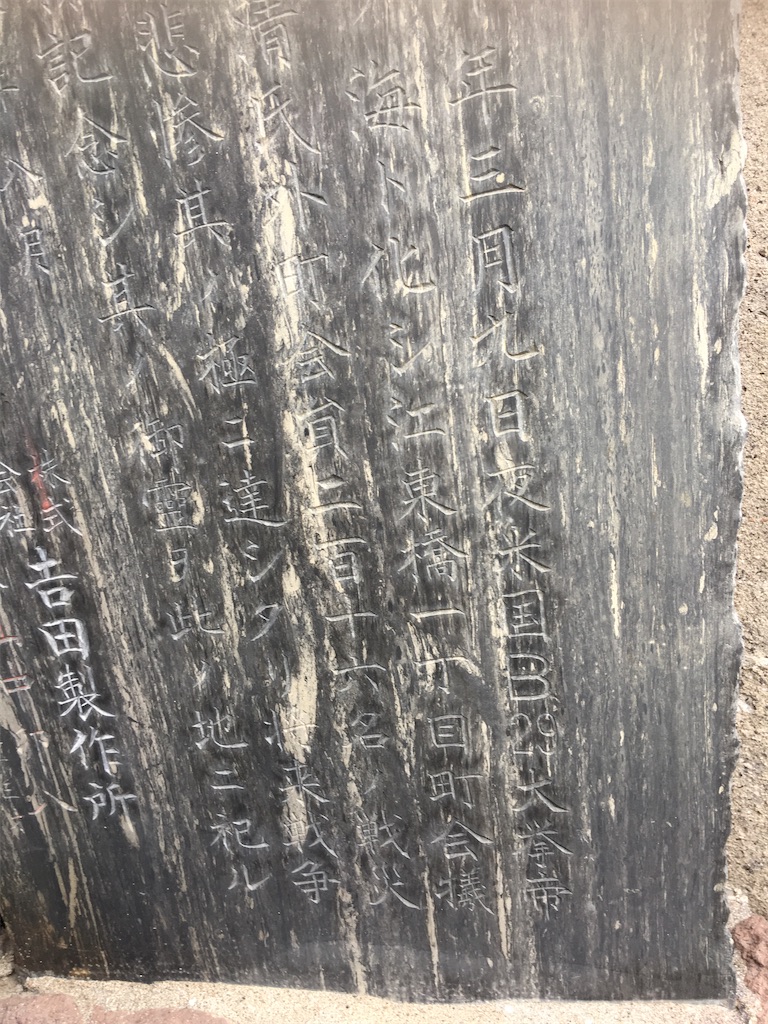 年三月九日夜米国B29大挙帝
海ト化シ江東橋一丁目町会犠
氏外町会員二百十六名ノ戦災
悲惨其ノ極ニ達シタ 来戦争
記念シ其ノ御霊ヲ此ノ地ニ祀ル
八月
株式会社 吉田製作所